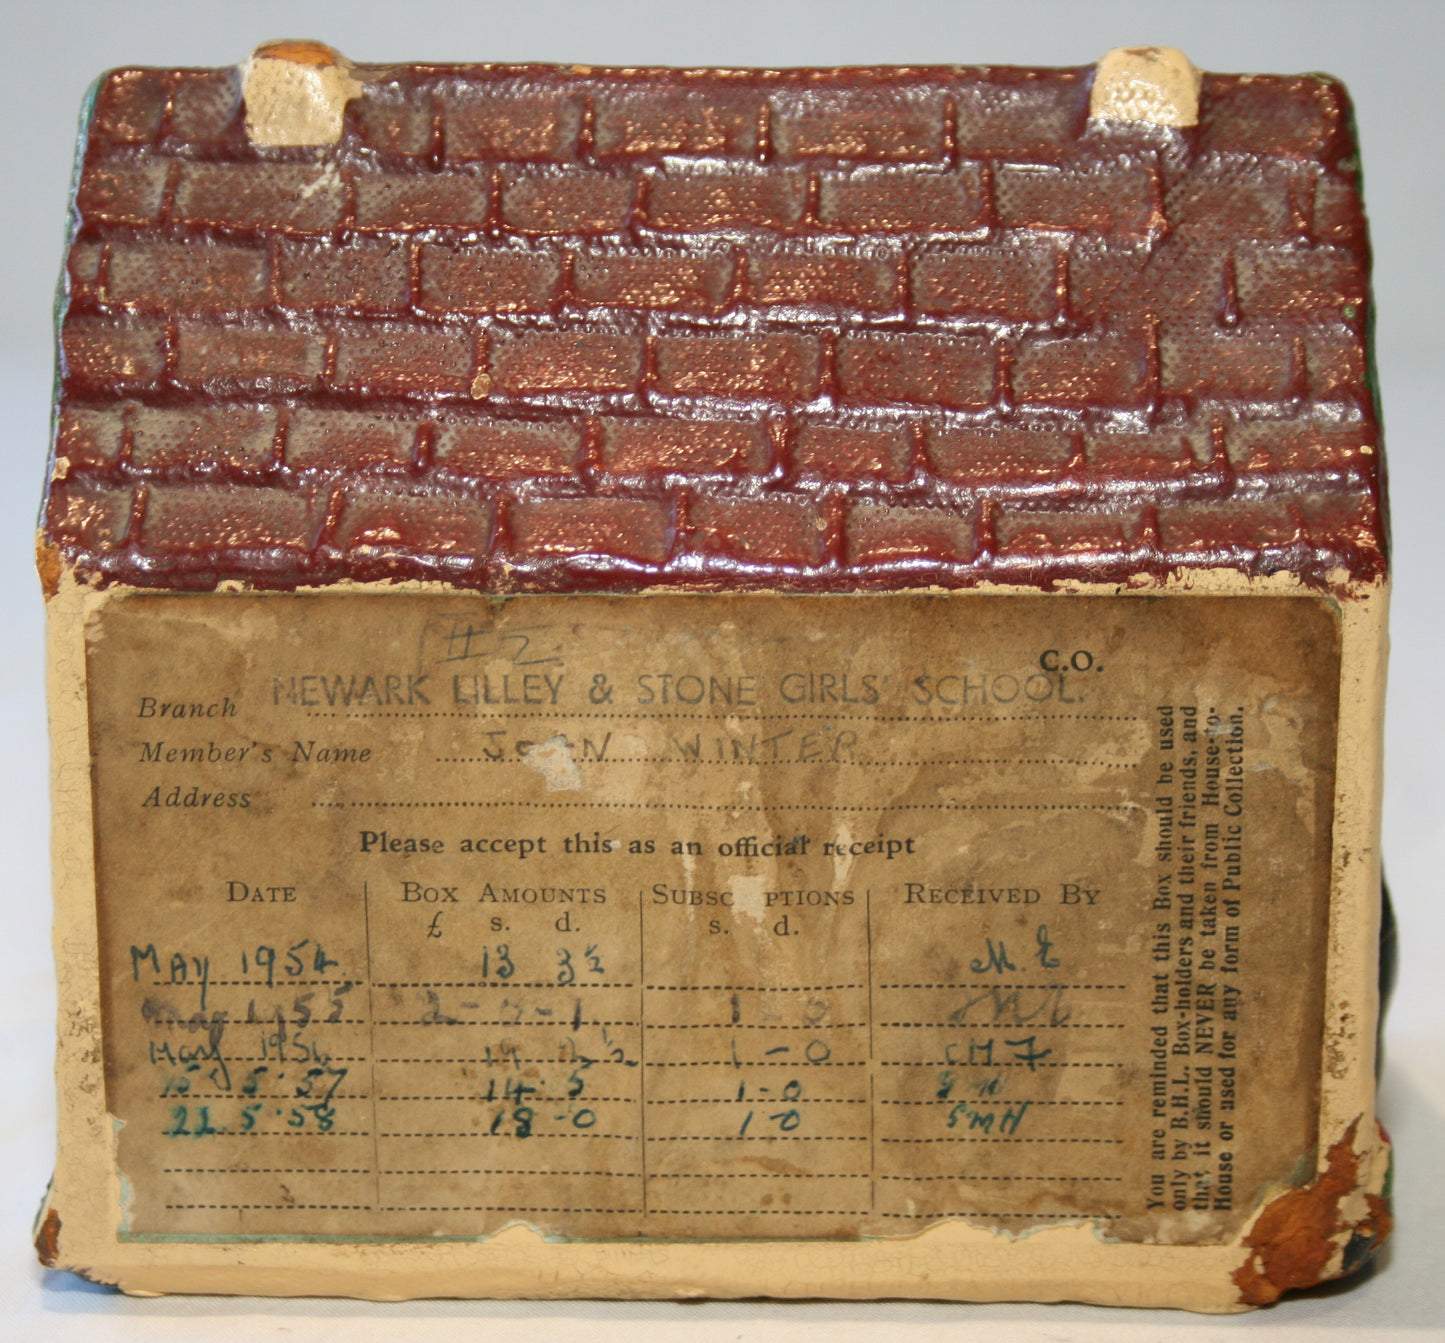 C.O.
Branch NEWARK LILLEY & STONE GIRLS' SCHOOL.
Member's Name JOAN WINTER
Address
Please accept this as an official receipt
DATE BOX AMOUNTS SUBSC PTIONS RECEIVED BY
£ s. d. s. d.
May 1954 13 3½ M. E
May 1955 2 - - 1 1 - 0
May 1956 2½ 1 - 0
15 5·57 14· 5 1-0
21.5·58 18-0 1-0 SMH
You are reminded that this Box should be used
only by B.H.L. Box-holders and their friends, and
that it should NEVER be taken from House-to-
House or used for any form of Public Collection.